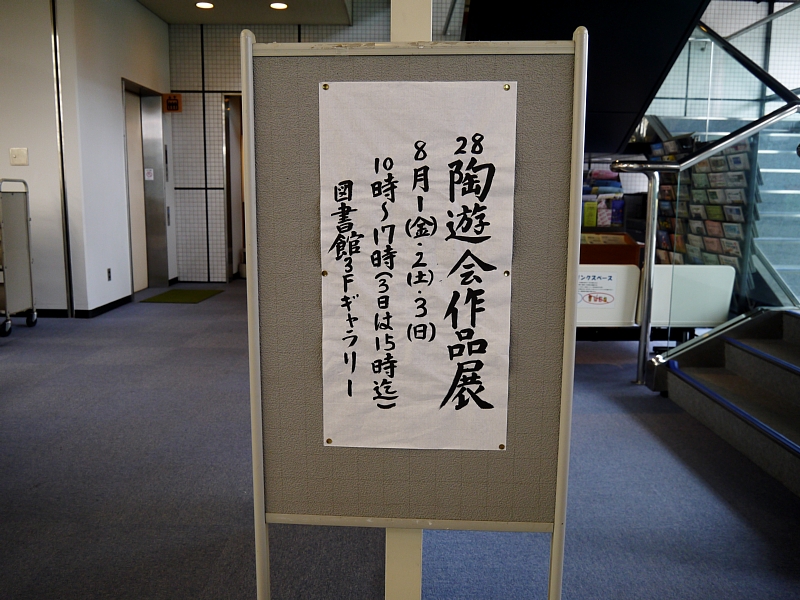 28陶遊会作品展
8月1(金)・2(土)・3(日)
10時〜17時(3日は15時迄)
図書館3Fギャラリー
ングスペース